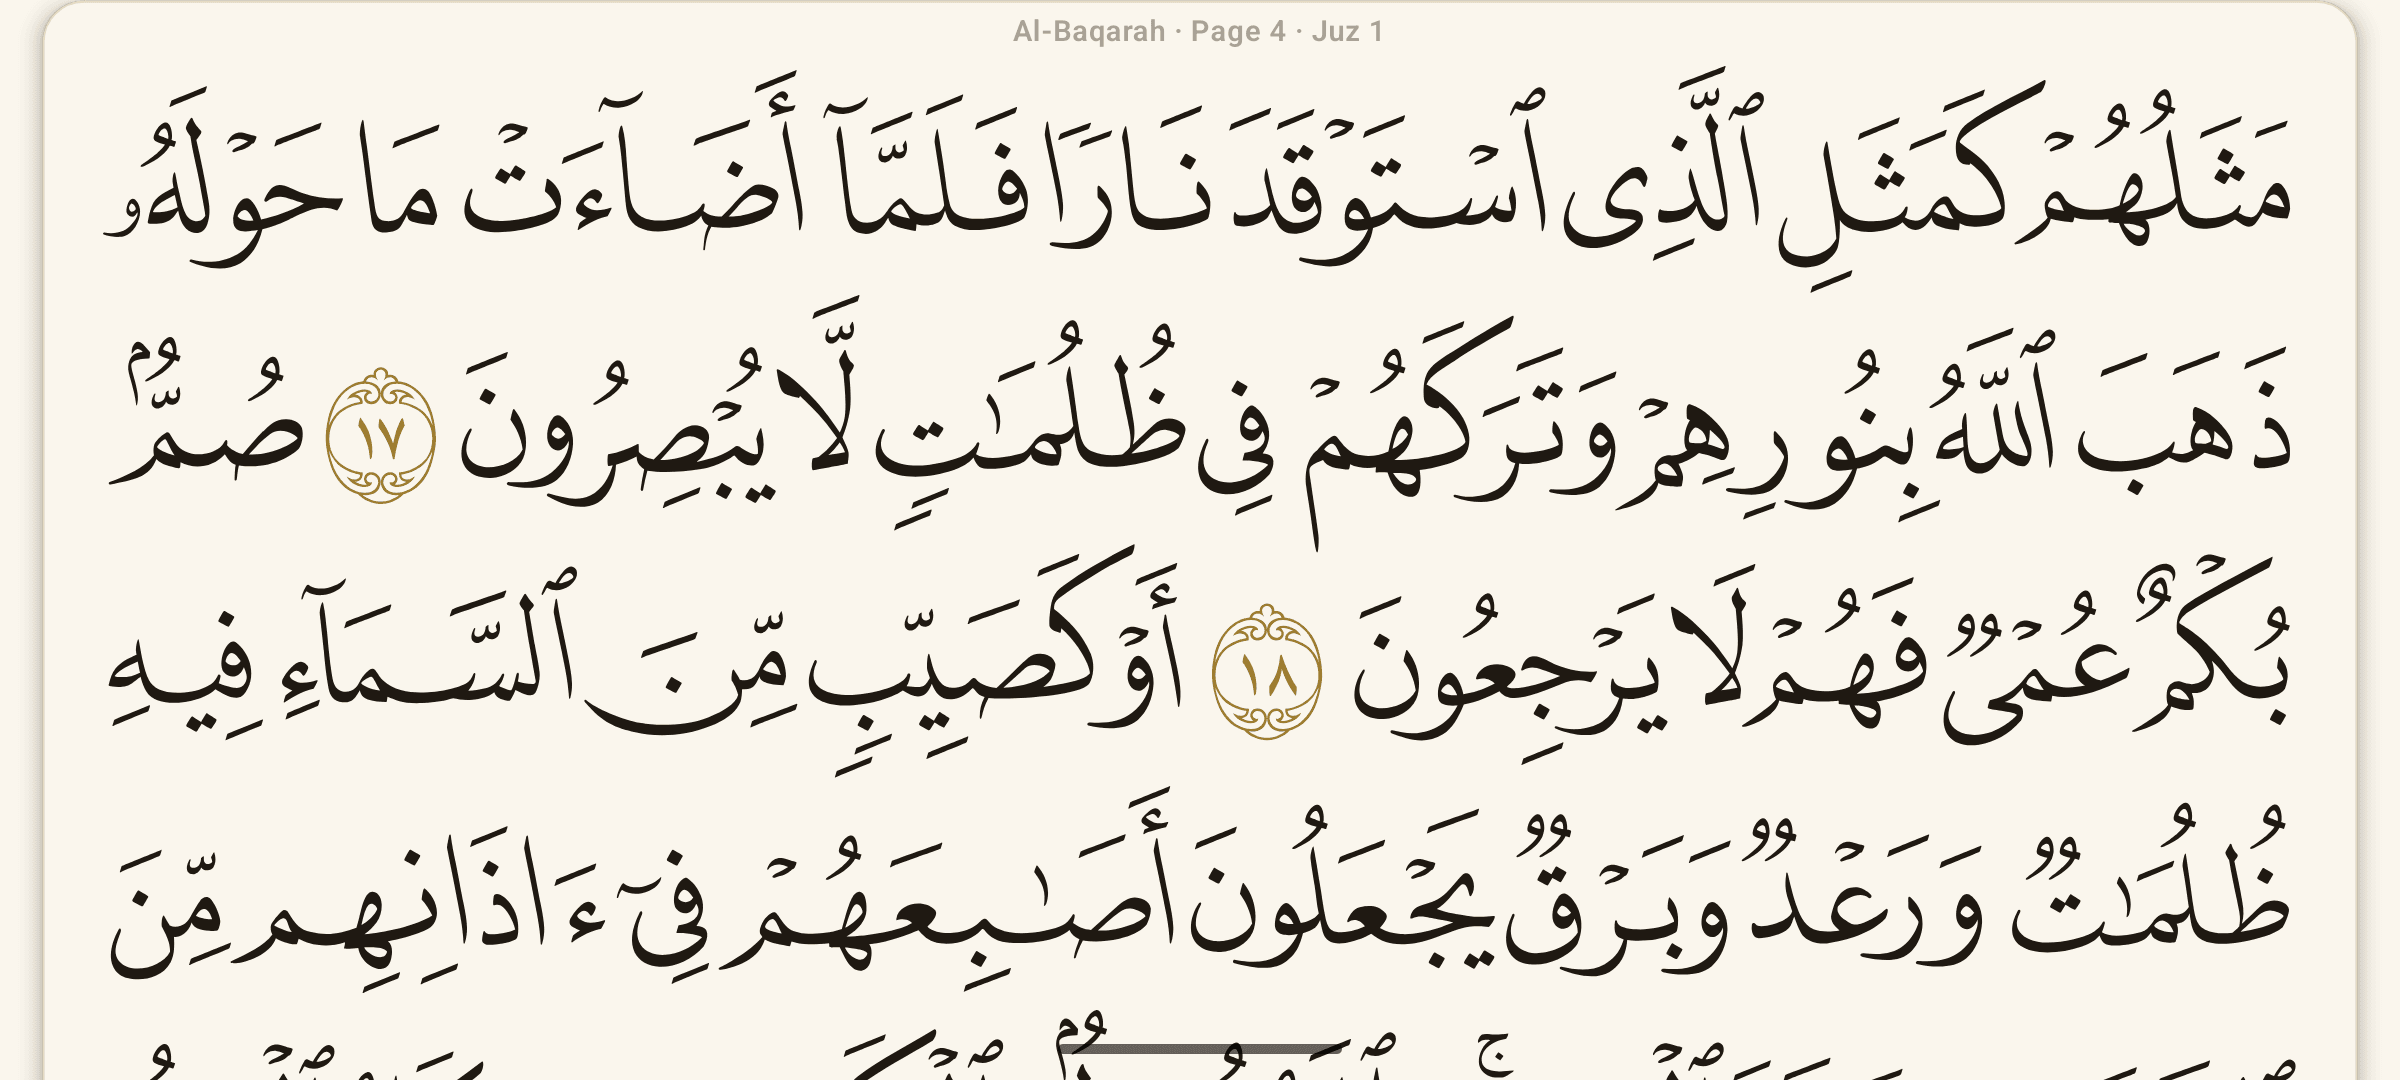 Al-Baqarah · Page 4 · Juz 1
مَثَلُهُمْ كَمَثَلِ ٱلَّذِى ٱسْتَوْقَدَ نَارًا فَلَمَّآ أَضَآءَتْ مَا حَوْلَهُۥ
ذَهَبَ ٱللَّهُ بِنُورِهِمْ وَتَرَكَهُمْ فِى ظُلُمَـٰتٍ لَّا يُبْصِرُونَ ١٧ صُمٌّۢ
بُكْمٌ عُمْىٌ فَهُمْ لَا يَرْجِعُونَ ١٨ أَوْ كَصَيِّبٍ مِّنَ ٱلسَّمَآءِ فِيهِ
ظُلُمَـٰتٌ وَرَعْدٌ وَبَرْقٌ يَجْعَلُونَ أَصَـٰبِعَهُمْ فِىٓ ءَاذَانِهِم مِّنَ